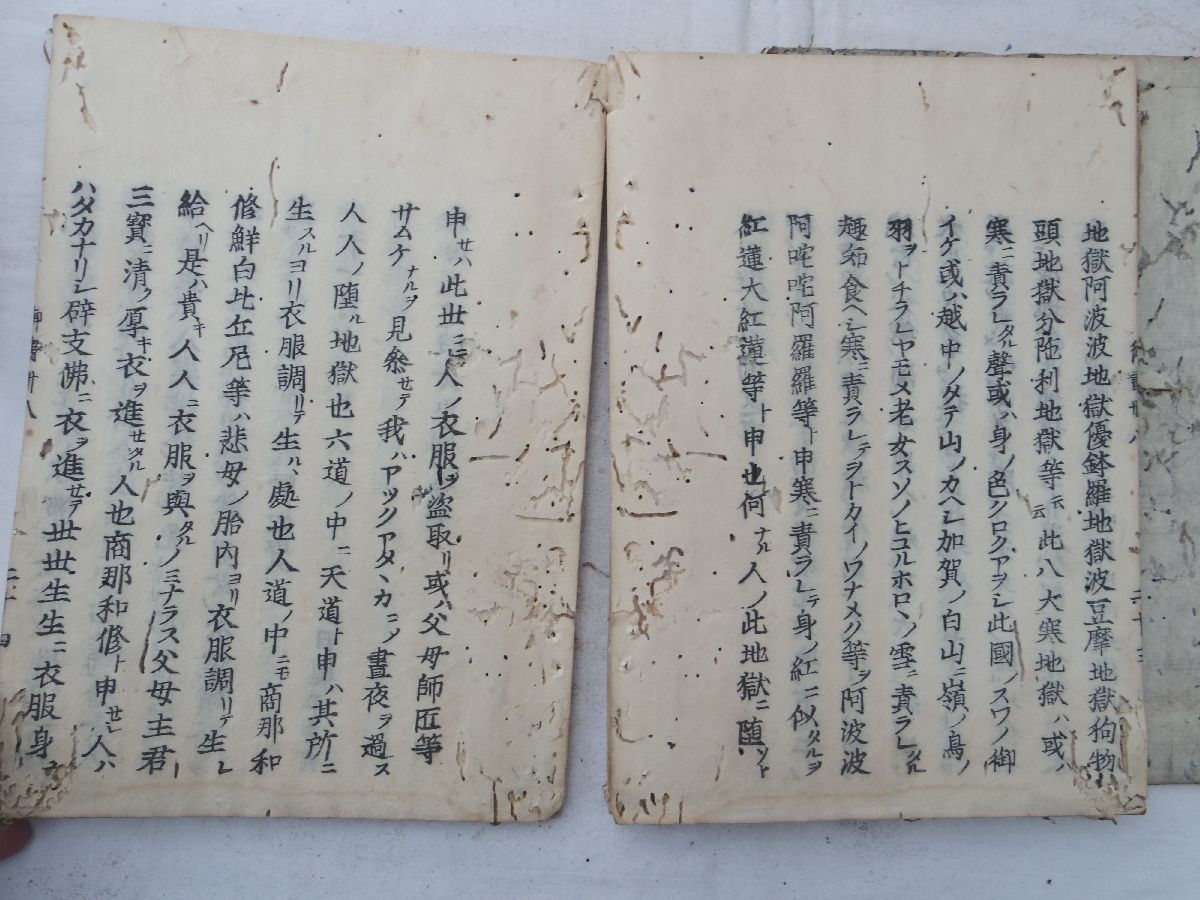 地獄阿波波地獄優鉢羅地獄波豆摩地獄狗物
頭地獄分陁利地獄等云云此八大寒地獄ハ或ハ
寒ニ責ラレタル聲或ハ身ノ色クロクアヲシ此國ノスワノ御
イケ或ハ越中ノタテ山ノカヘシ加賀ノ白山ニ嶺ノ鳥ノ
羽ヲトチラレヤモメ老女スソノヒユルホロヽノ雪ニ責ラレタル
寒ニ責ヲラレテヲトカイノワナメク等ヲ阿波波
阿咤咤阿羅羅等ト申寒ニ責ラレテ身ノ紅ニ似タルヲ
紅蓮大紅蓮等ト申也何ナル人ノ此地獄ニ堕ソト
申セハ此世ニテ人ノ衣服ヲ盗取リ或ハ父母師匠等
サムケナルヲ見参セテ我ハアツクアタヽカニノ晝夜ヲ過ス
人人ノ堕ル地獄也六道ノ中ニ天道ト申ハ其所ニ
生スルヨリ衣服調リテ生ルヽ處也人道ノ中ニモ商那和
修鮮白比丘尼等ハ悲母ノ胎内ヨリ衣服調リテ生レ
給ヘリ是ハ貴キ人人ニ衣服ヲ與タルノミナラス父母主君
三寳ニ清ク厚キ衣ヲ進セタル人也商那和修ト申セシ人ハ
ハタカナリシ辟支佛ニ衣ヲ進セテ世世生生ニ衣服身ニ